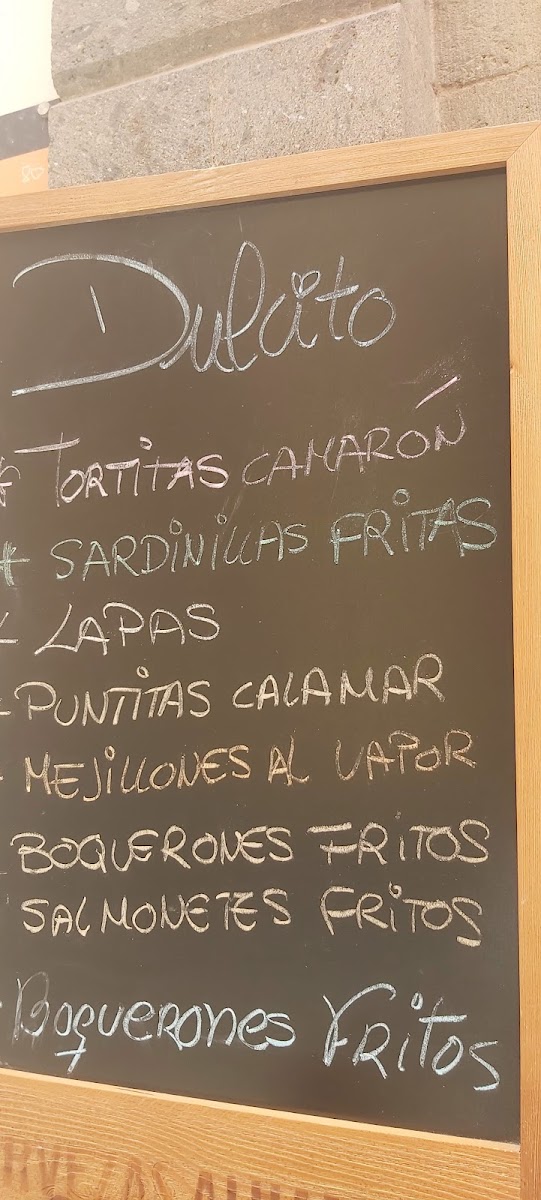 Dulcito
* TORTITAS CAMARÓN
* SARDINILLAS FRITAS
LAPAS
PUNTITAS CALAMAR
MEJILLONES AL VAPOR
BOQUERONES FRITOS
SALMONETES FRITOS
BOQUERONES FRITOS